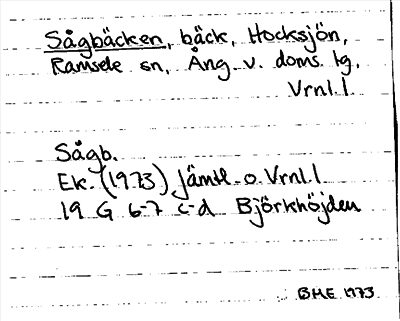 Sågbäcken, bäck, Hocksjön,
Ramsele sn, Ång. v. doms. tg.
Vrnl. l.
Sågb.
Ek. (1973) Jämtl. o. Vrnl. l
19 G 6-7 c-d Björkhöjden
BHE 1973.